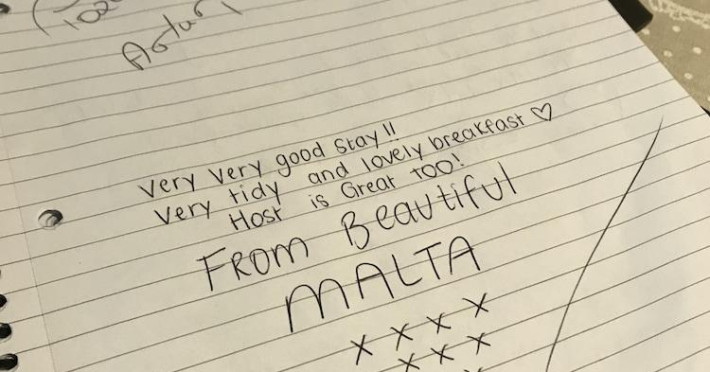 Very very good stay!!
Very tidy and lovely breakfast ♡
Host is Great too!
From Beautiful
MALTA
x x x x
x x x